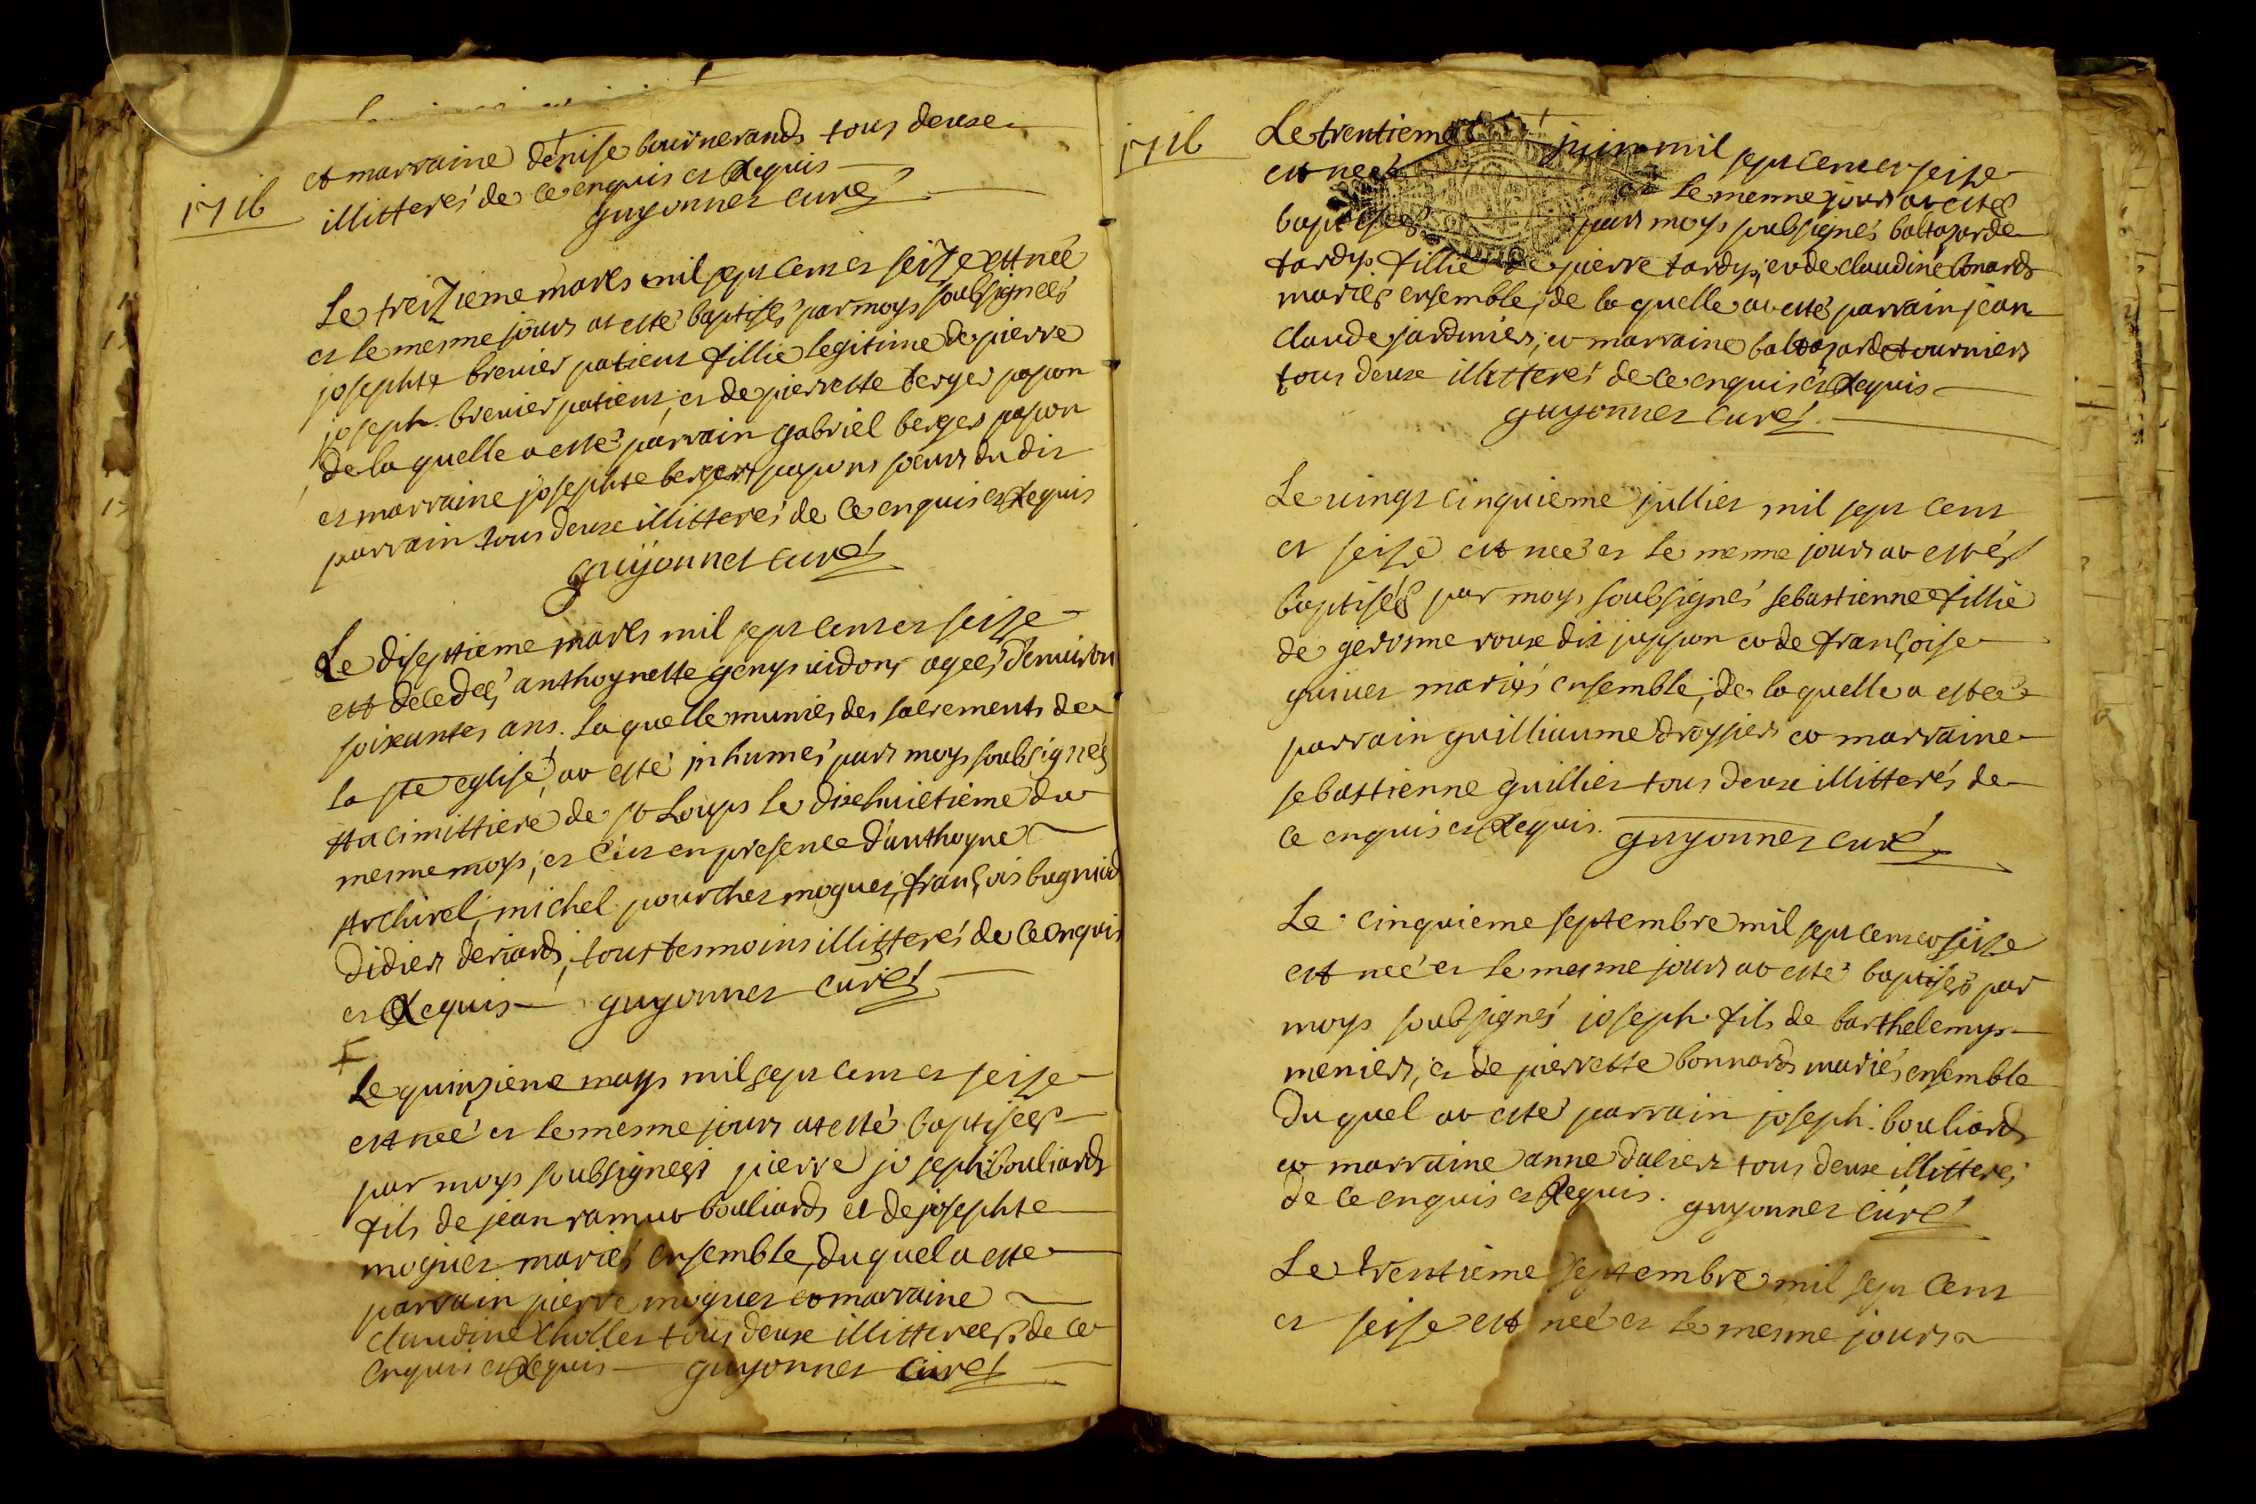 1716
et marraine denise bournerands tous deuse
illitteres de ce enquis et Requis
guyonnet curé
Le treizieme mars mil sept cens et seize est née
et le mesme jours at esté baptisés par moys soubsignees
josephte brenier patient fillie legitime de pierre
joseph brenier patient, et de pierrette berger papon
de laquelle a esté parrain gabriel berger papon
et marraine josephte berger papons soeurs du dit
parrain tous deuse illitteres de ce enquis et Requis
guyonnet curé
Le diseptieme mars mil sept cens et seise
est decedee anthoynette genys uidons agees d'enuiron
soixantes ans. laquelle munies des sacrements de
la ste eglise, at esté inhumés pars moys soubsignés
au cimittiere de st Loups le dixehuictieme du
mesme moys, et c'est en presence d'anthoyne
Arclurel, michel pourchet moguet, françois bugniard
didiers deriards, tous tesmoins illitteres de ce enquis
et Requis guyonnet curé
Le quinzieme mays mil sept cens et seise
est neé et le mesme jours at esté baptisees
par moys soubsignes pierre joseph bouliards
fils de jean ramus bouliards et de josephte
moguet mariés ensemble, duquel a esté
parrain pierre moguet et marraine
claudine chollet tous deuse illitterees de ce
enquis et Requis guyonnet curé
1716
Le trentieme juin mil sept cens et seise
est neés et le mesme jours at estés
baptisees pars moys soubsignés baltazarde
tardys fillie de pierre tardys, et de claudine bonards
mariés ensemble, de la quelle at esté parrain jean
claude jardiniers, et marraine baltazarde tourniers
tous deuse illitteres de ce enquis et Requis
guyonnet curé
Le uingt cinquieme jullies mil sept cens
et seise est neé et le mesme jours at estés
baptisés par moys soubsignés sebastienne fillie
de gerosme rouse dit juppon et de françoise
guiuet mariés ensemble, de la quelle a esteé
parrain guilliaume drossiers et marraine
sebastienne guillies tous deuse illitterés de
ce enquis et Requis. guyonnet curé
Le cinquieme septembre mil sept cens et seise
est neé et le mesme jours at esté baptisés par
moys soubsignés joseph fils de barthelemys
meniers, et de pierrette bonnards mariés ensemble
duquel at esté parrain joseph bouliards
et marraine anne daliers tous deuse illitteres
de ce enquis et Requis. guyonnet curé
Le trentieme septembre mil sept cens
et seise est neé et le mesme jours a